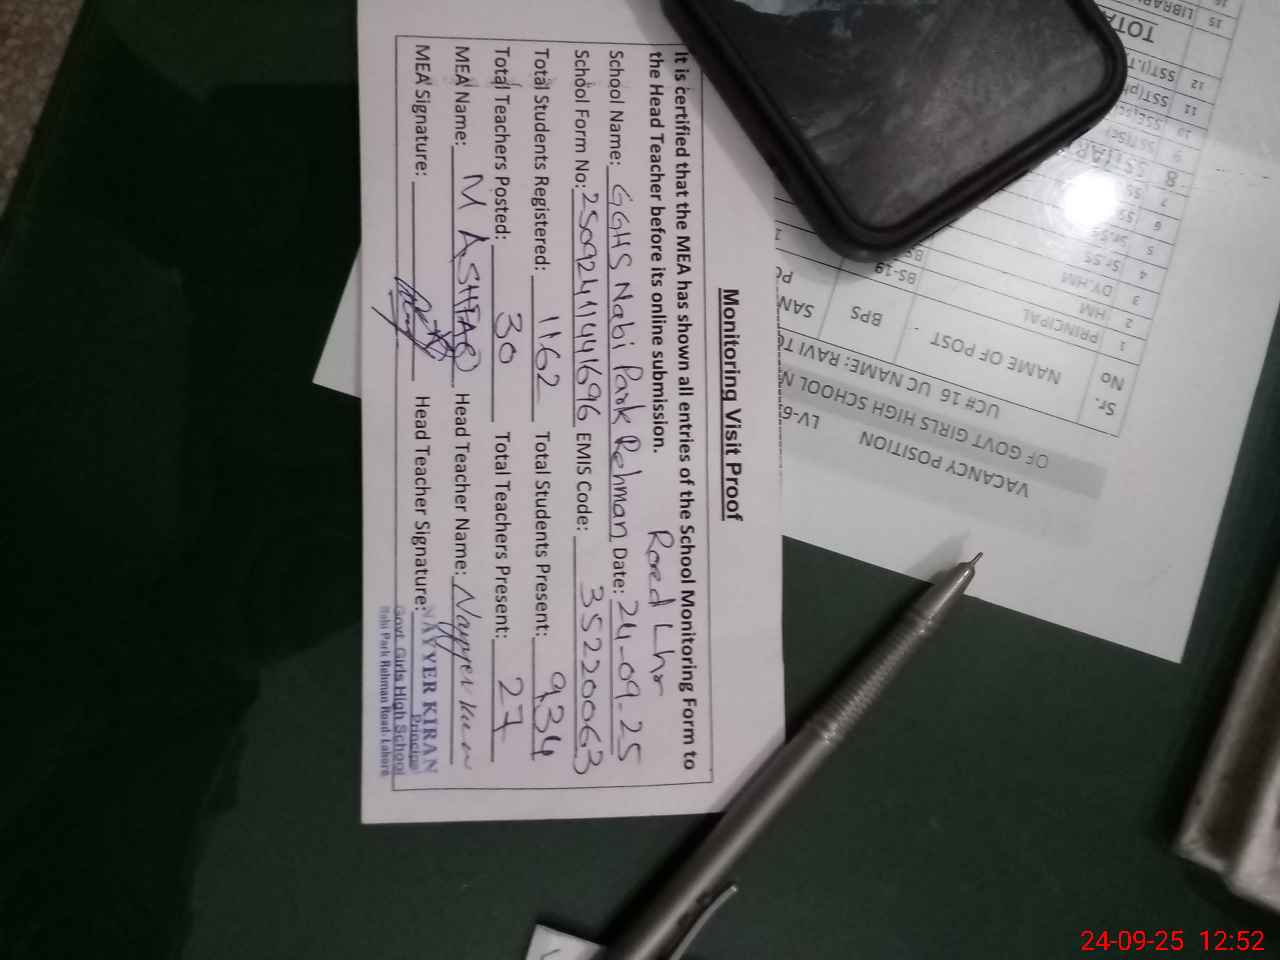 Monitoring Visit Proof
It is certified that the MEA has shown all entries of the School Monitoring Form to
the Head Teacher before its online submission.
Road Lhr
School Name: GGHS Nabi Park Rehman Date: 24-09-25
School Form No: 250924114416696 EMIS Code: 35220063
Total Students Registered: 1162 Total Students Present: 934
Total Teachers Posted: 30 Total Teachers Present: 27
MEA Name: M ASHFAQ Head Teacher Name: Nayyer Kiran
MEA Signature: Head Teacher Signature:
NAYYER KIRAN
Principal
Govt. Girls High School
Nabi Park Rehman Road, Lahore
VACANCY POSITION
OF GOVT GIRLS HIGH SCHOOL N
UC# 16 UC NAME: RAVI TO
LV-6
Sr. No NAME OF POST BPS SAN
PO
1 PRINCIPAL BS-19
2 HM
3 DY.HM
4 Sr.SS
5 Sr.SS
6 SS
7 SS
8 SS
9
10
11 SST(ph
12 SST(I.T
TOTA
15 LIBRAR
16
24-09-25 12:52